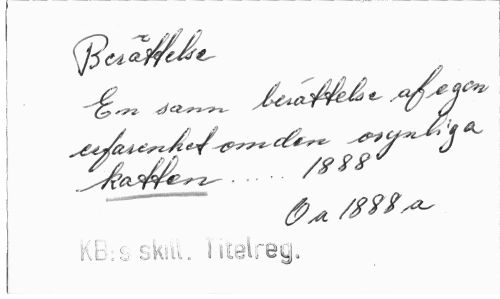 Berättelse
En sann berättelse af egen
erfarenhet om den osynliga
katten ..... 1888
Oa 1888 a
KB:s skill. Titelreg.